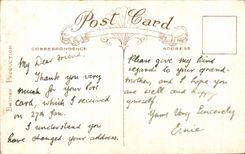 Post Card
CORRESPONDENCE
ADDRESS
BRITISH PRODUCTION
My Dear Friend,
Thank you very
much for your Xmas
card, which I received
on 27th Jan.
I understand you
have changed your address.
Please give my kind
regards to your grand-
mother, and I hope you
are well and happy
yourself.
Yours Very Sincerely
Ernie